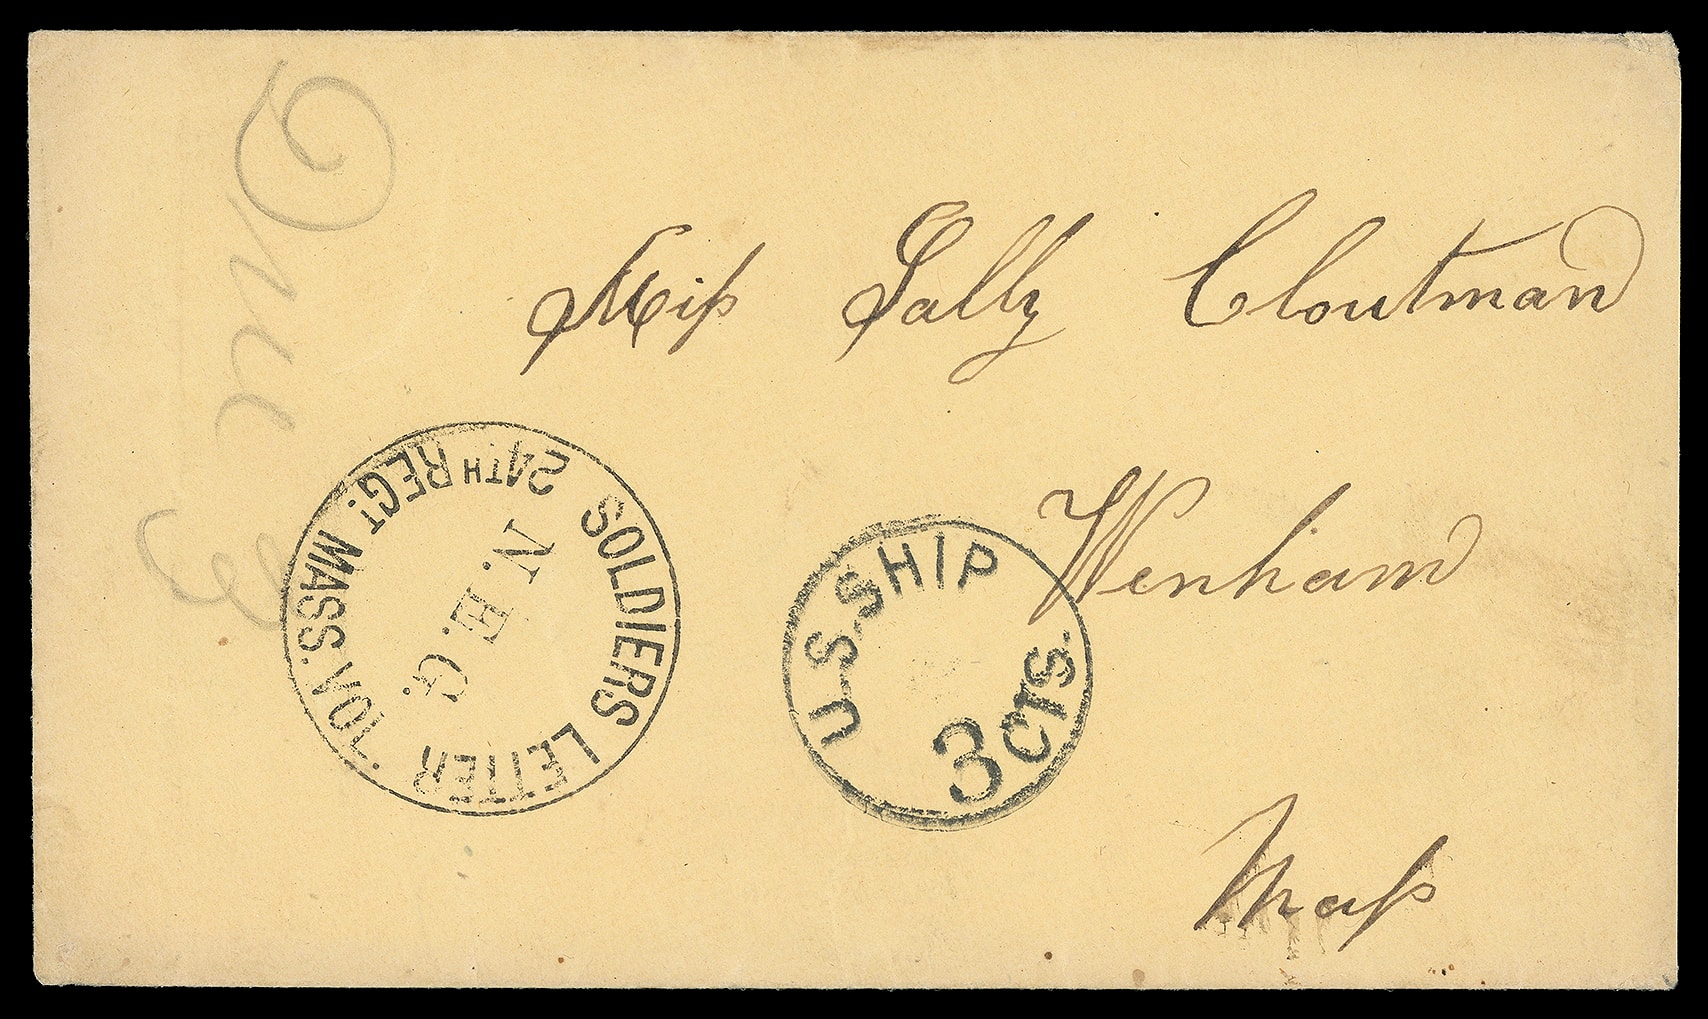 Due 3
Miss Sally Cloutman
Wenham
Mass
SOLDIERS LETTER
24TH REGT. MASS. VOL.
N. H. G.
U.S. SHIP
3 CTS.